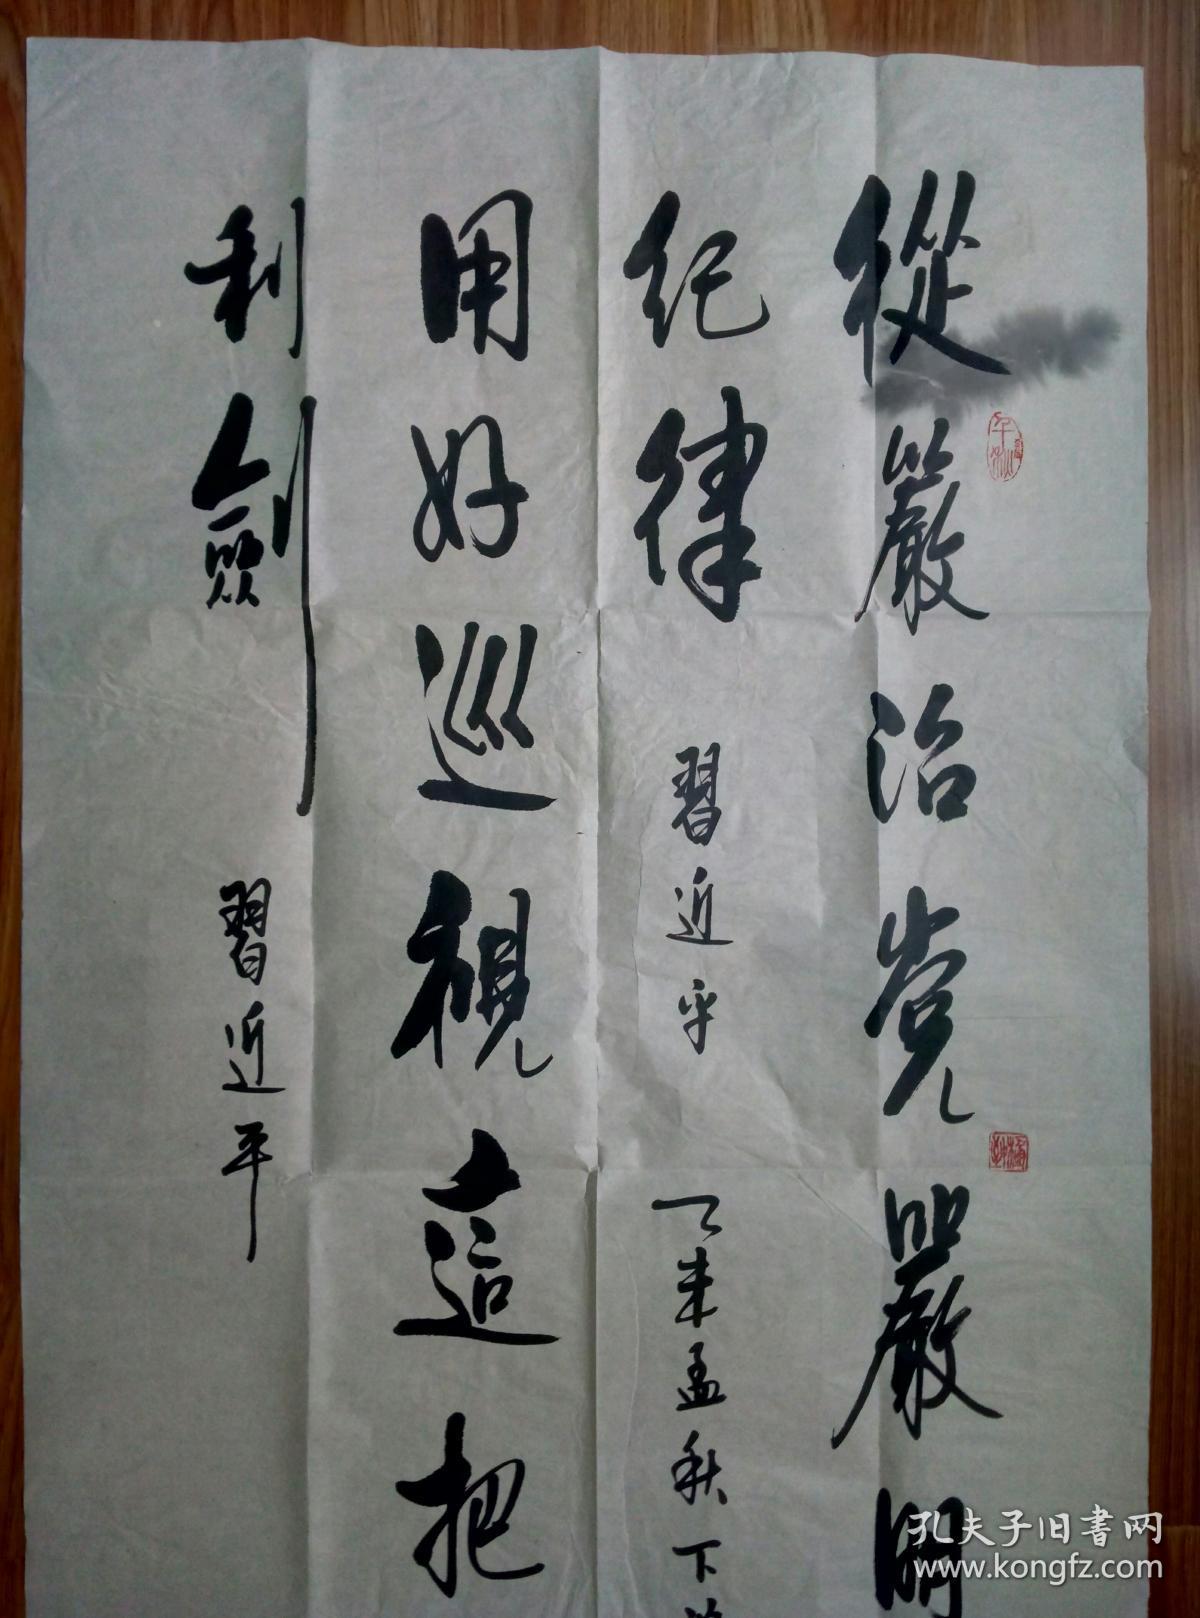 從嚴治党嚴明
紀律 習近平 乙未孟秋下
用好巡視這把
利劍 習近平
孔夫子旧書网
www.kongfz.com